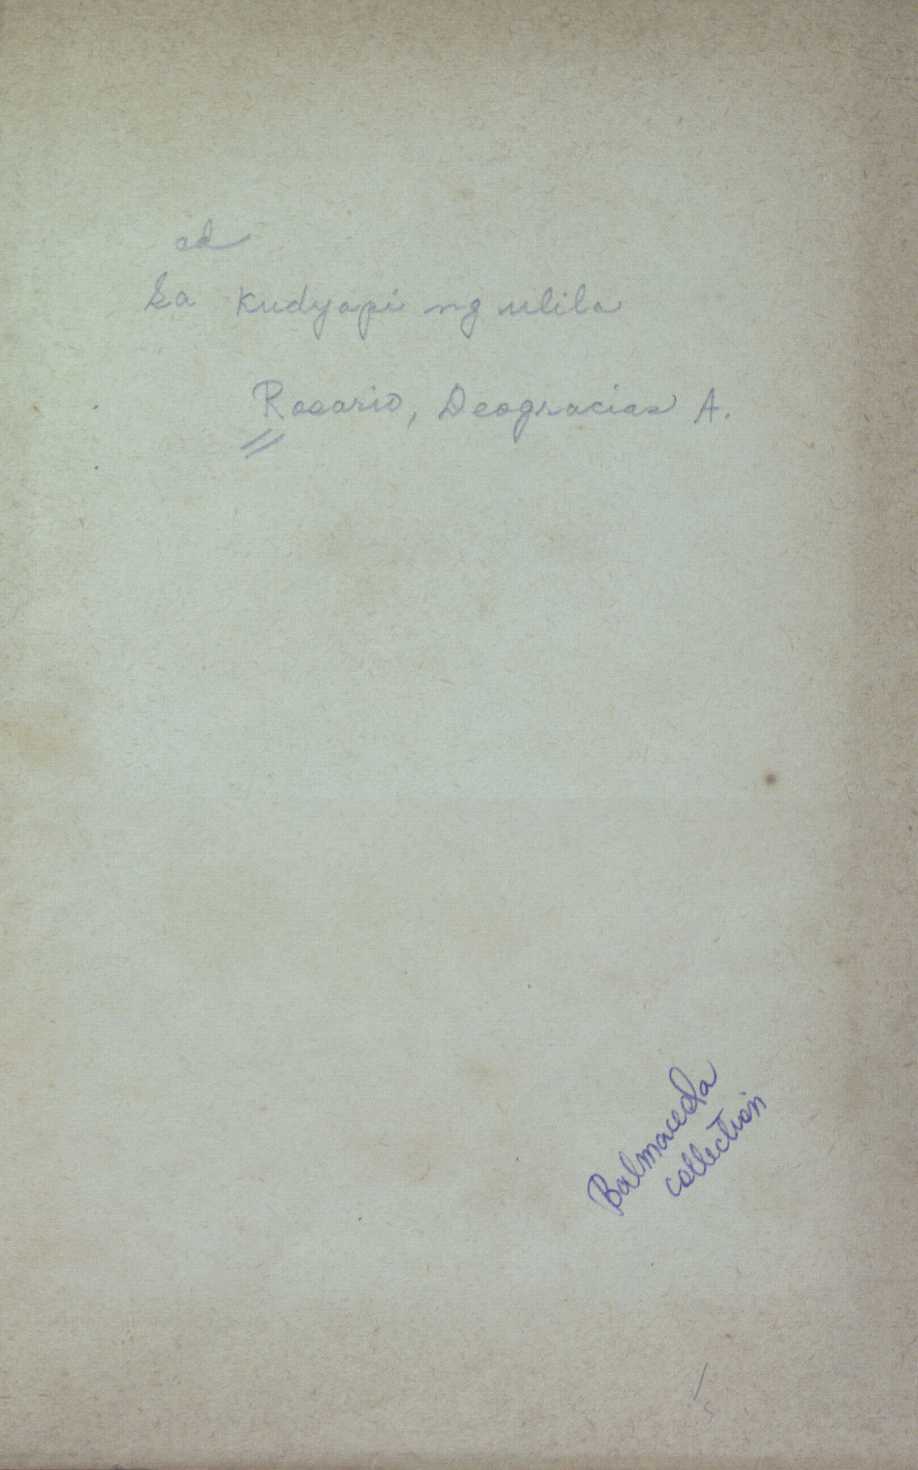 ad
Sa Kudyapi ng ulila
Rosario, Deogracias A.
Balmaceda
collection